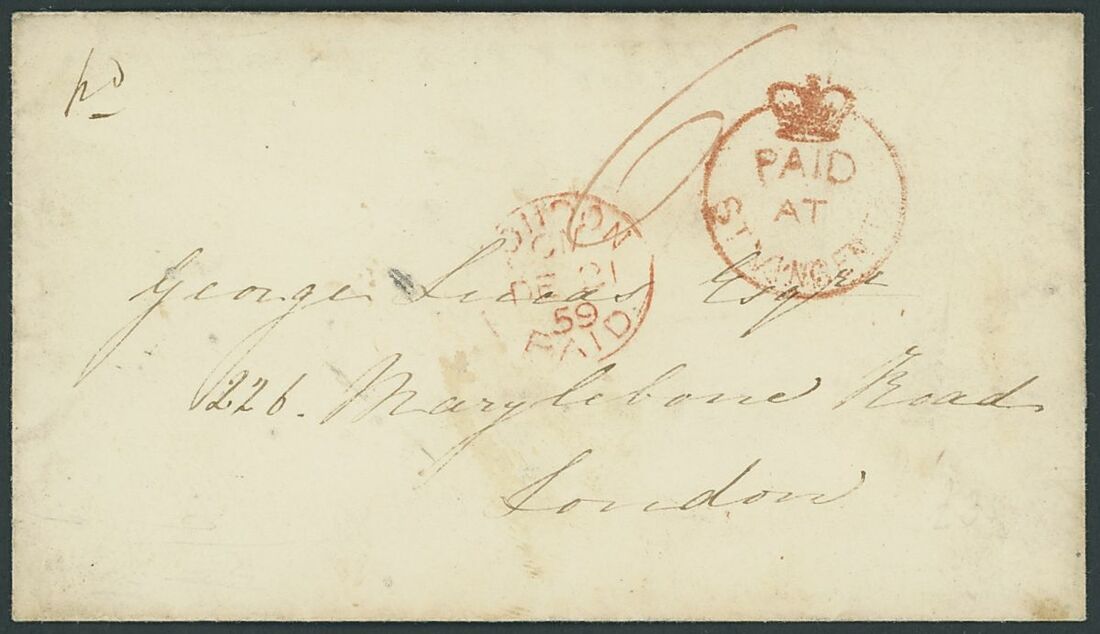 pd
6
PAID
AT
ST. VINCENT
LONDON
CN
DE 21
59
PAID
George Lucas Esqre
226. Marylebone Road
London